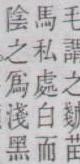 毛謂之虦苗
馬私處白而
陰之爲淺黑